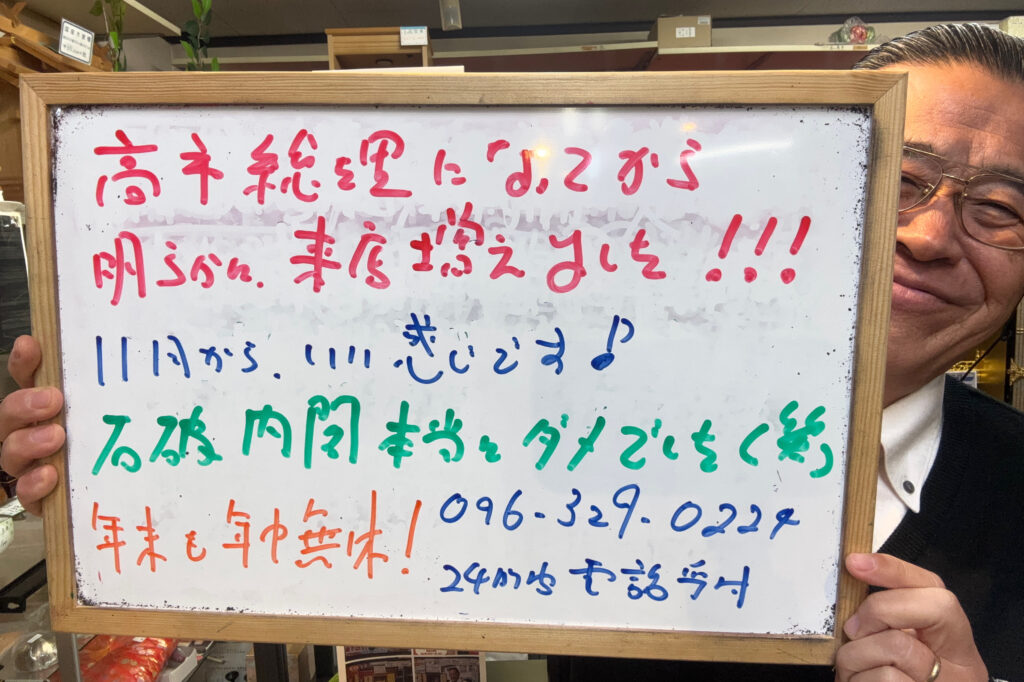 高市総理になってから
明らかに、来店増えました!!!
11月から、いい感じです♪
石破内閣本当にダメでした(笑)
年末も年中無休!
096-329-0224
24時間電話受付